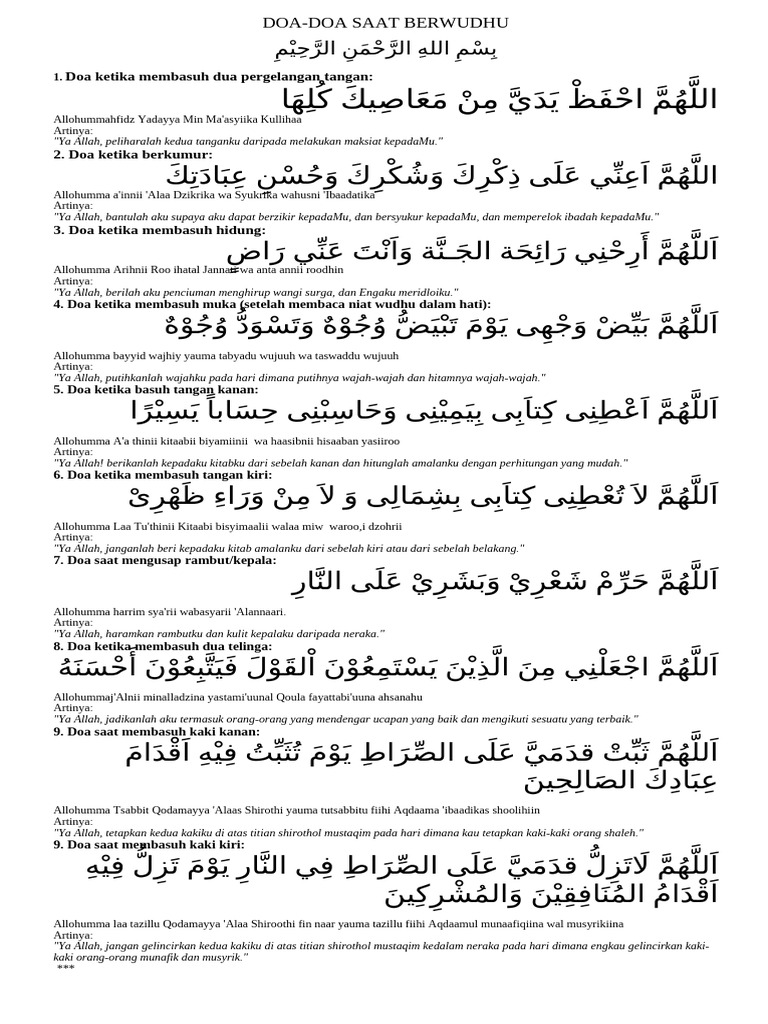 DOA-DOA SAAT BERWUDHU
بِسْمِ اللهِ الرَّحْمَنِ الرَّحِيْمِ
1. Doa ketika membasuh dua pergelangan tangan:
اللَّهُمَّ احْفَظْ يَدَيَّ مِنْ مَعَاصِيكَ كُلِهَا
Allohummahfidz Yadayya Min Ma'asyiika Kullihaa
Artinya:
"Ya Allah, peliharalah kedua tanganku daripada melakukan maksiat kepadaMu."
2. Doa ketika berkumur:
اللَّهُمَّ اَعِنِّي عَلَى ذِكْرِكَ وَشُكْرِكَ وَحُسْنِ عِبَادَتِكَ
Allohumma a'innii 'Alaa Dzikrika wa Syukrika wahusni 'Ibaadatika
Artinya:
"Ya Allah, bantulah aku supaya aku dapat berzikir kepadaMu, dan bersyukur kepadaMu, dan memperelok ibadah kepadaMu."
3. Doa ketika membasuh hidung:
اَللَّهُمَّ أَرِحْنِي رَائِحَة الجَـنَّة وَاَنْتَ عَنِّي رَاضٍ
Allohumma Arihnii Roo ihatal Jannati wa anta annii roodhin
Artinya:
"Ya Allah, berilah aku penciuman menghirup wangi surga, dan Engaku meridloiku."
4. Doa ketika membasuh muka (setelah membaca niat wudhu dalam hati):
اَللَّهُمَّ بَيِّضْ وَجْهِى يَوْمَ تَبْيَضُّ وُجُوْهٌ وَتَسْوَدُّ وُجُوْهٌ
Allohumma bayyid wajhiy yauma tabyadu wujuuh wa taswaddu wujuuh
Artinya:
"Ya Allah, putihkanlah wajahku pada hari dimana putihnya wajah-wajah dan hitamnya wajah-wajah."
5. Doa ketika basuh tangan kanan:
اَللَّهُمَّ اَعْطِنِى كِتاَبِى بِيَمِيْنِى وَحَاسِبْنِى حِسَاباً يَسِيْرًا
Allohumma A'a thinii kitaabii biyamiinii  wa haasibnii hisaaban yasiiroo
Artinya:
"Ya Allah! berikanlah kepadaku kitabku dari sebelah kanan dan hitunglah amalanku dengan perhitungan yang mudah."
6. Doa ketika membasuh tangan kiri:
اَللَّهُمَّ لاَ تُعْطِنِى كِتاَبِى بِشِمَالِى وَ لاَ مِنْ وَرَاءِ ظَهْرِىْ
Allohumma Laa Tu'thinii Kitaabi bisyimaalii walaa miw  waroo,i dzohrii
Artinya:
"Ya Allah, janganlah beri kepadaku kitab amalanku dari sebelah kiri atau dari sebelah belakang."
7. Doa saat mengusap rambut/kepala:
اَللَّهُمَّ حَرِّمْ شَعْرِيْ وَبَشَرِيْ عَلَى النَّارِ
Allohumma harrim sya'rii wabasyarii 'Alannaari.
Artinya:
"Ya Allah, haramkan rambutku dan kulit kepalaku daripada neraka."
8. Doa ketika membasuh dua telinga:
اَللَّهُمَّ اجْعَلْنِي مِنَ الَّذِيْنَ يَسْتَمِعُوْنَ اْلقَوْلَ فَيَتَّبِعُوْنَ أَحْسَنَهُ
Allohummaj'Alnii minalladzina yastami'uunal Qoula fayattabi'uuna ahsanahu
Artinya:
"Ya Allah, jadikanlah aku termasuk orang-orang yang mendengar ucapan yang baik dan mengikuti sesuatu yang terbaik."
9. Doa saat membasuh kaki kanan:
اَللَّهُمَّ ثَبِّتْ قدَمَيَّ عَلَى الصِّرَاطِ يَوْمَ تُثَبِّتُ فِيْهِ اَقْدَامَ
عِبَادِكَ الصَالِحِينَ
Allohumma Tsabbit Qodamayya 'Alaas Shirothi yauma tutsabbitu fiihi Aqdaama 'ibaadikas shoolihiin
Artinya:
"Ya Allah, tetapkan kedua kakiku di atas titian shirothol mustaqim pada hari dimana kau tetapkan kaki-kaki orang shaleh."
9. Doa saat membasuh kaki kiri:
اَللَّهُمَّ لَاتَزِلُّ قدَمَيَّ عَلَى الصِّرَاطِ فِي النَّارِ يَوْمَ تَزِلُّ فِيْهِ
اَقْدَامُ المُنَافِقِيْنَ وَالمُشْرِكِينَ
Allohumma laa tazillu Qodamayya 'Alaa Shiroothi fin naar yauma tazillu fiihi Aqdaamul munaafiqiina wal musyrikiina
Artinya:
"Ya Allah, jangan gelincirkan kedua kakiku di atas titian shirothol mustaqim kedalam neraka pada hari dimana engkau gelincirkan kaki-
kaki orang-orang munafik dan musyrik."
***